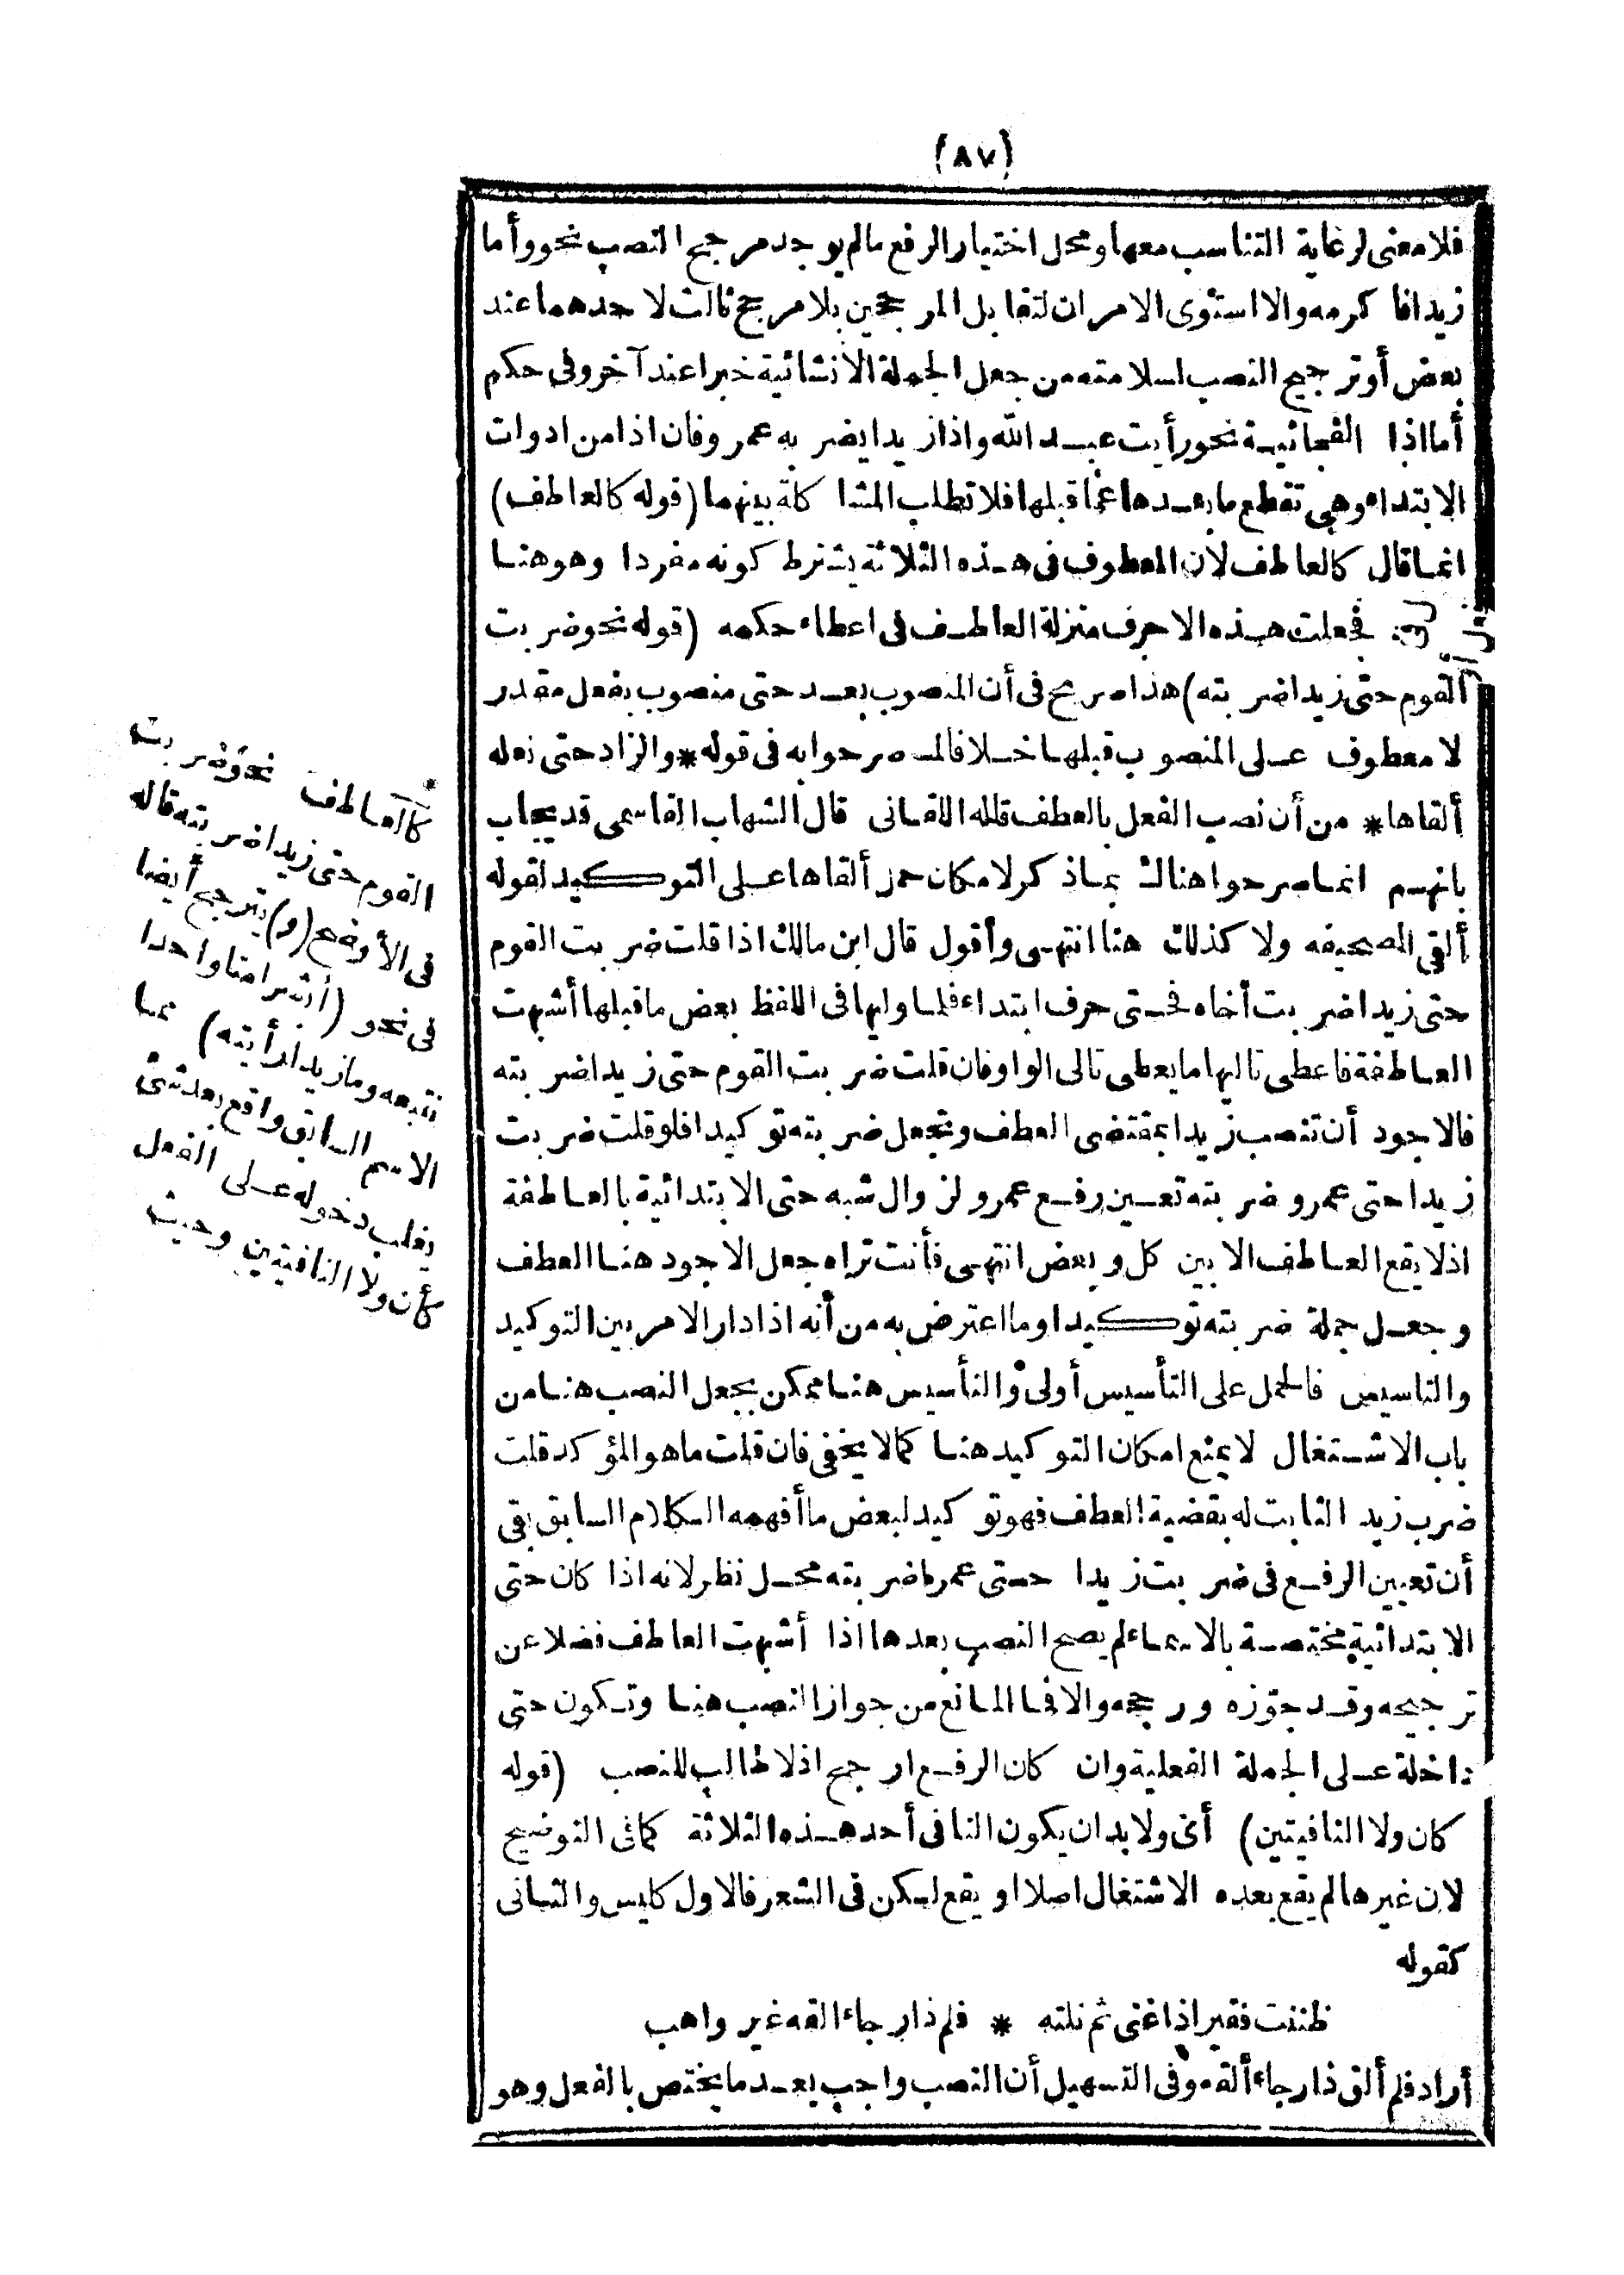 (٨٧)
فلا معنى لرعاية التناسب معها ومحل اختيار الرفع ما لم يوجد مرجح النصب نحو وأما
زيدا فاكرمه والا استوى الامران لتقابل المرجحين بلا مرجح ثالث لاحدهما عند
بعض أو ترجيح النصب لسلامته من جعل الجملة الانشائية خبرا عند آخر وفى حكم
أما اذا الفجائية نحو رأيت عبد الله واذا زيدا يضربه عمرو فان اذا من ادوات
الابتداء وهى تقطع ما بعدها عما قبلها فلا تطلب المشاكلة بينهما (قوله كالعاطف)
انما قال كالعاطف لان المعطوف فى هذه الثلاثة يشترط كونه مفردا وهو هنا
فجعلت هذه الاحرف منزلة العاطف فى اعطاء حكمه (قوله نحو ضربت
القوم حتى زيدا ضربته) هذا صريح فى أن المنصوب بعد حتى منصوب بفعل مقدر
لا معطوف على المنصوب قبلها خلافا لما صرحوا به فى قوله * والزاد حتى نعله
ألقاها * من أن نصب الفعل بالعطف قاله اللقانى قال الشهاب القاسمى قد يجاب
بانهم انما صرحوا هناك بما ذكر لامكان حمل ألقاها على التوكيد لقوله
ألقى الصحيفه ولا كذلك هنا انتهى وأقول قال ابن مالك اذا قلت ضربت القوم
حتى زيدا ضربت أخاه فحتى حرف ابتداء فلما وليها فى اللفظ بعض ما قبلها أشبهت
العاطفة فاعطى تاليها ما يعطى تالى الواو فان قلت ضربت القوم حتى زيدا ضربته
فالاجود أن تنصب زيدا بمقتضى العطف وتجعل ضربته توكيدا فلو قلت ضربت
زيدا حتى عمرو ضربته تعين رفع عمرو لزوال شبه حتى الابتدائية بالعاطفة
اذ لا يقع العاطف الا بين كل وبعض انتهى فأنت تراه جعل الاجود هنا العطف
وجعل جملة ضربته توكيدا وما اعترض به من أنه اذا دار الامر بين التوكيد
والتاسيس فالحمل على التأسيس أولى والتأسيس هنا ممكن بجعل النصب هنا من
باب الاشتغال لا يمنع امكان التوكيد هنا كما لا يخفى فان قلت ما هو المؤكد قلت
ضرب زيد الثابت له بقضية العطف فهو توكيد لبعض ما أفهمه الكلام السابق بقى
أن تعيين الرفع فى ضربت زيدا حتى عمرا ضربته محل نظر لانه اذا كان حتى
الابتدائية مختصة بالاسماء لم يصح النصب بعدها اذا أشبهت العاطف فضلا عن
ترجيحه وقد جوّزه ورجحه والا فما المانع من جواز النصب هنا وتكون حتى
داخلة على الجملة الفعلية وان كان الرفع ارجح اذ لا طالب للنصب (قوله
كان ولا النافيتين) أى ولا بد ان يكون النافى أحد هذه الثلاثة كما فى التوضيح
لان غيرها لم يقع بعده الاشتغال اصلا او يقع لكن فى الشعر فالاول كليس والثانى
كقوله
ظننت فقيرا ذا غنى ثم نلته * فلم ذا رجاء القه غير واهب
أراد فلم ألق ذا رجاء ألقه وفى التسهيل أن النصب واجب بعد ما يختص بالفعل وهو
كالعاطف نحو ضربت
القوم حتى زيدا ضربته قاله
فى الأوضح (و) يترجح أيضا
فى نحو (أبشرا منا واحدا
نتبعه وما زيدا رأيته) مما
الاسم السابق واقع بعد شئ
يغلب دخوله على الفعل
كأن ولا النافيتين وحيث